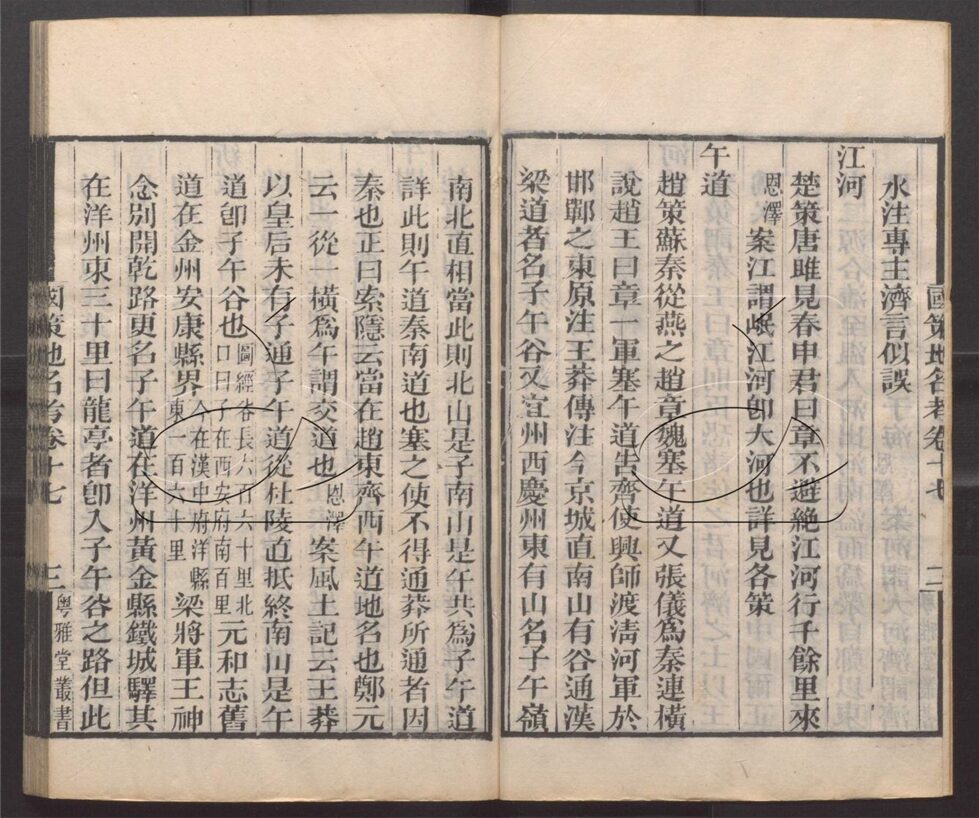 水注專主濟言似誤
江河
楚策唐雎見春申君曰章不避絕江河行千餘里來
恩澤案江謂岷江河卽大河也詳見各策
午道
趙策蘇秦從燕之趙章魏塞午道又張儀為秦連橫
說趙王曰章一軍塞午道告齊使興師渡清河軍於
邯鄲之東原注王莽傳注今京城直南山有谷通漢
梁道者名子午谷又宜州西慶州東有山名子午嶺
國策地名考卷十七 二
南北直相當此則北山是子南山是午共為子午道
詳此則午道秦南道也塞之使不得通莽所通者因
秦也正曰索隱云當在趙東齊西午道地名也鄭元
云一從一橫為午謂交道也恩澤案風土記云王莽
以皇后未有子通子午道從杜陵直抵終南山是午
道卽子午谷也圖經谷長六百六十里北口曰子在西安府南百里元和志舊
道在金州安康縣界今在漢中府洋縣東一百六十里梁將軍王神
念別開乾路更名子午道在洋州黃金縣鐵城驛其
在洋州東三十里曰龍亭者卽入子午谷之路但此
國策地名考卷十七 三 粵雅堂叢書